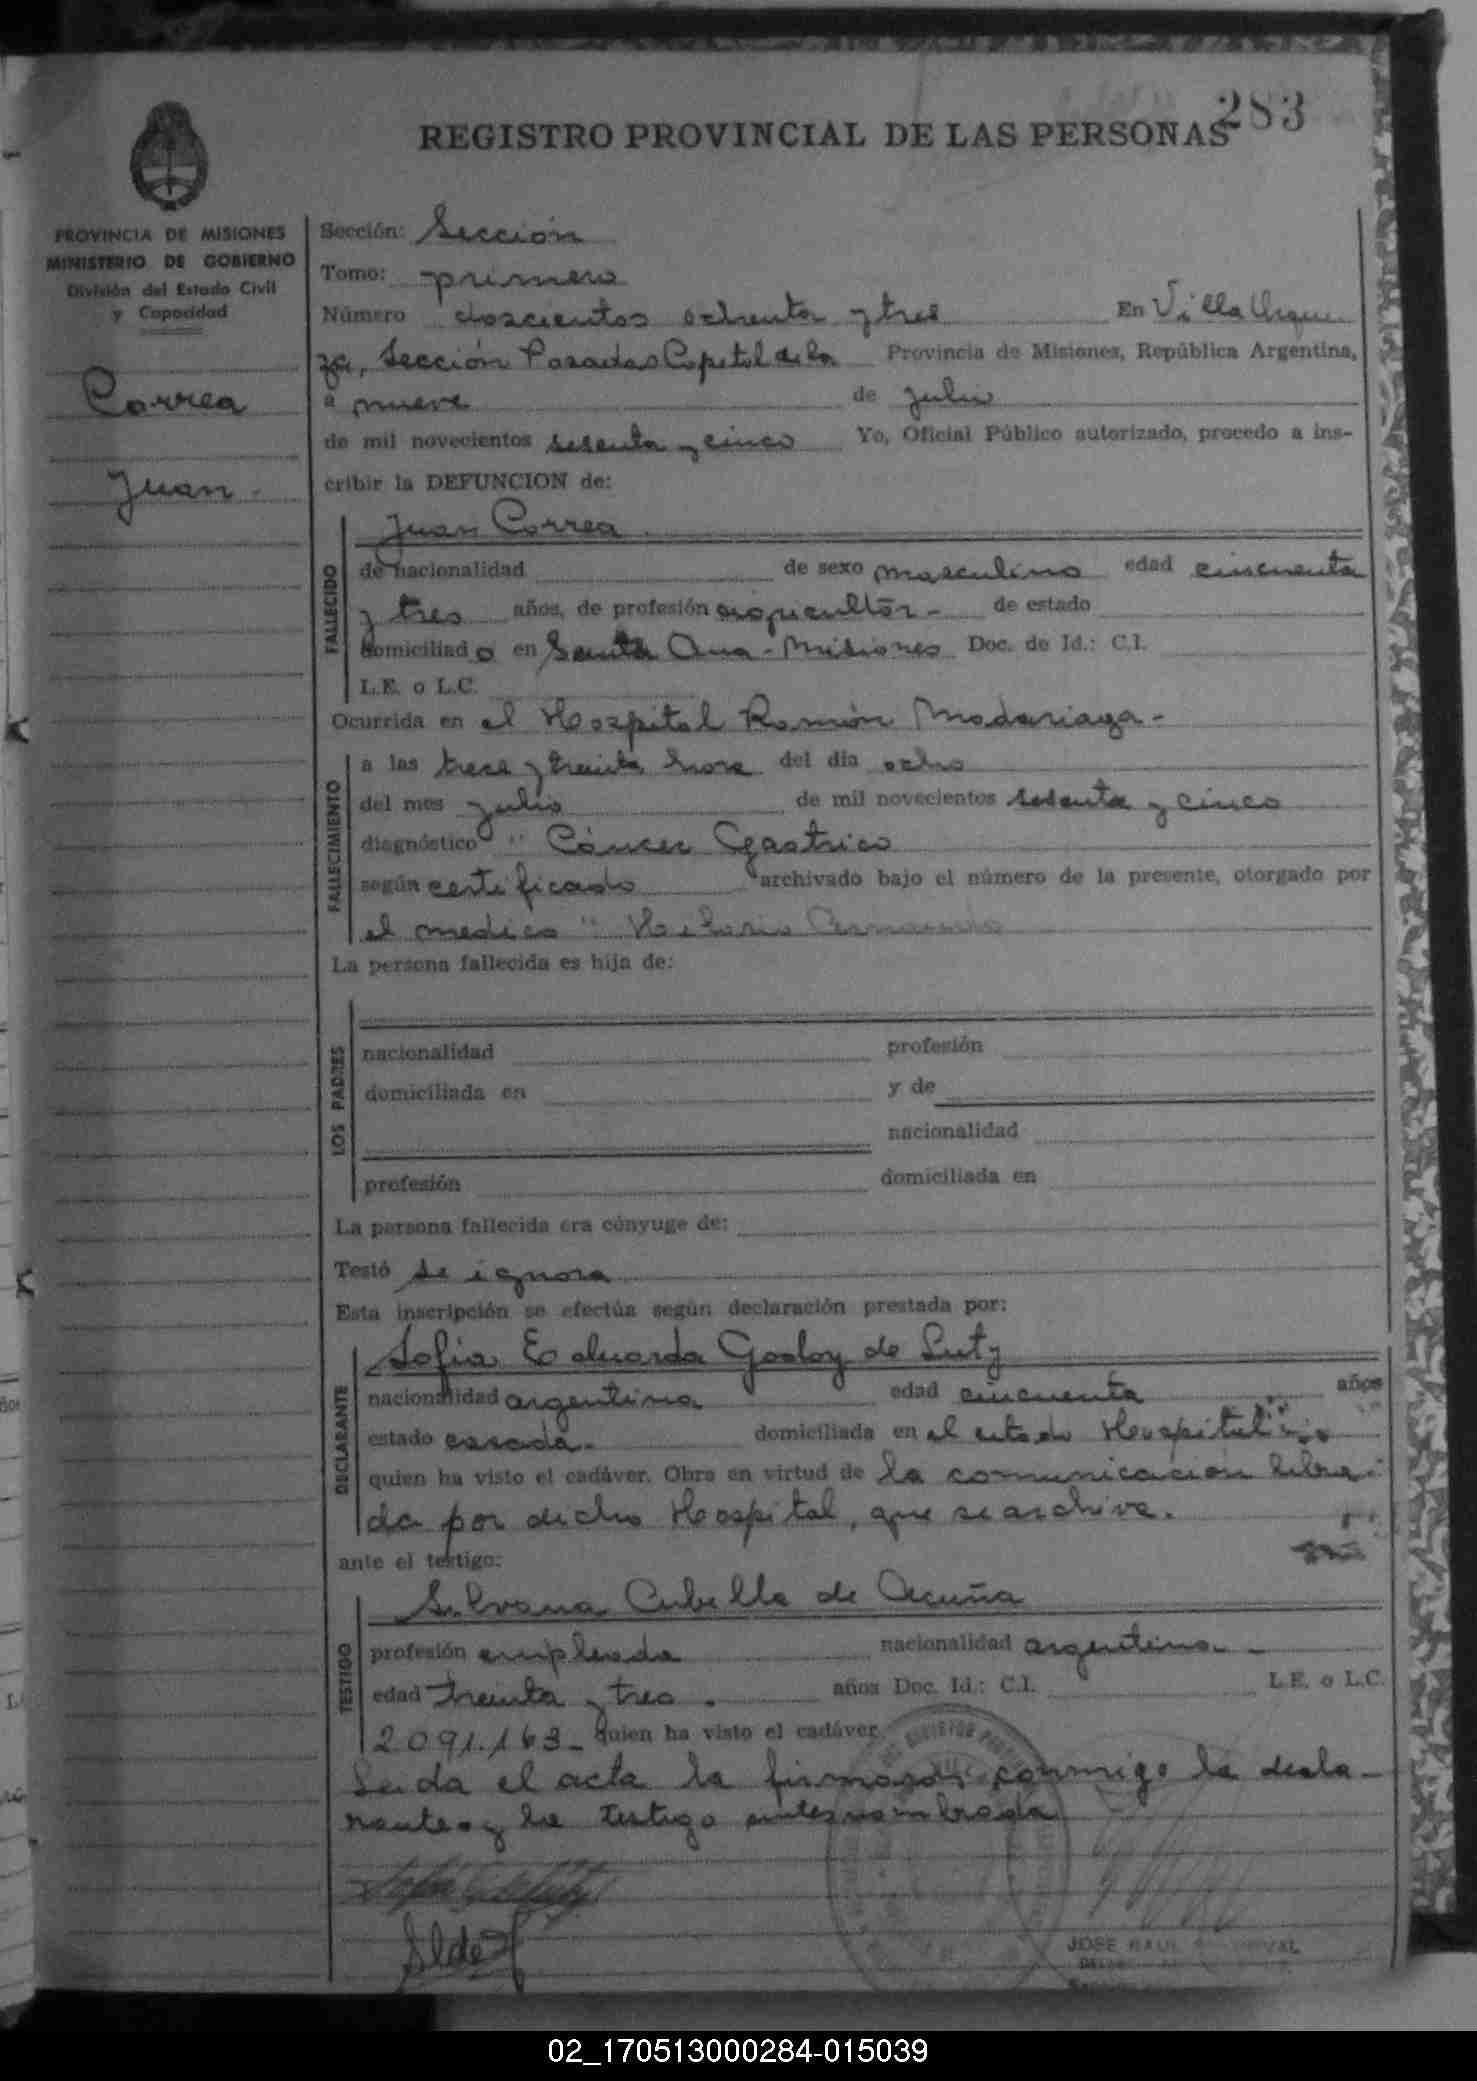 283
REGISTRO PROVINCIAL DE LAS PERSONAS
PROVINCIA DE MISIONES
MINISTERIO DE GOBIERNO
División del Estado Civil
y Capacidad
Correa
Juan.
Sección: Sección
Tomo: primero
Número doscientos ochenta y tres En Villa Urqui
za, Sección Posadas Capital de la Provincia de Misiones, República Argentina,
a nueve de julio
de mil novecientos sesenta y cinco Yo, Oficial Público autorizado, procedo a ins-
cribir la DEFUNCION de:
FALLECIDO
Juan Correa
de nacionalidad de sexo masculino edad cincuenta
y tres años, de profesión agricultor - de estado
domiciliado en Santa Ana - Misiones Doc. de Id.: C.I.
L.E. o L.C.
Ocurrida en el Hospital Ramón Madariaga -
FALLECIMIENTO
a las trece y treinta hora del día ocho
del mes julio de mil novecientos sesenta y cinco
diagnóstico " Cáncer Gastrico
según certificado archivado bajo el número de la presente, otorgado por
el medico "
La persona fallecida es hija de:
LOS PADRES
nacionalidad profesión
domiciliada en y de
nacionalidad
profesión domiciliada en
La persona fallecida era cónyuge de:
Testó se ignora
Esta inscripción se efectúa según declaración prestada por:
DECLARANTE
Sofia Eduarda Godoy de Luty
nacionalidad argentina edad cincuenta años
estado casada. domiciliada en el citado Hospital
quien ha visto el cadáver. Obra en virtud de la comunicación libra
da por dicho Hospital, que se archiva.
ante el testigo:
TESTIGO
Silvana Cubilla de Acuña
profesión empleada nacionalidad argentina -
edad treinta y tres. años Doc. Id.: C.I. L.E. o L.C.
2.091.163 - quien ha visto el cadáver.
Leida el acta la firmaron conmigo la decla-
rante y la testigo antes nombrada
JOSE RAUL
02_170513000284-015039